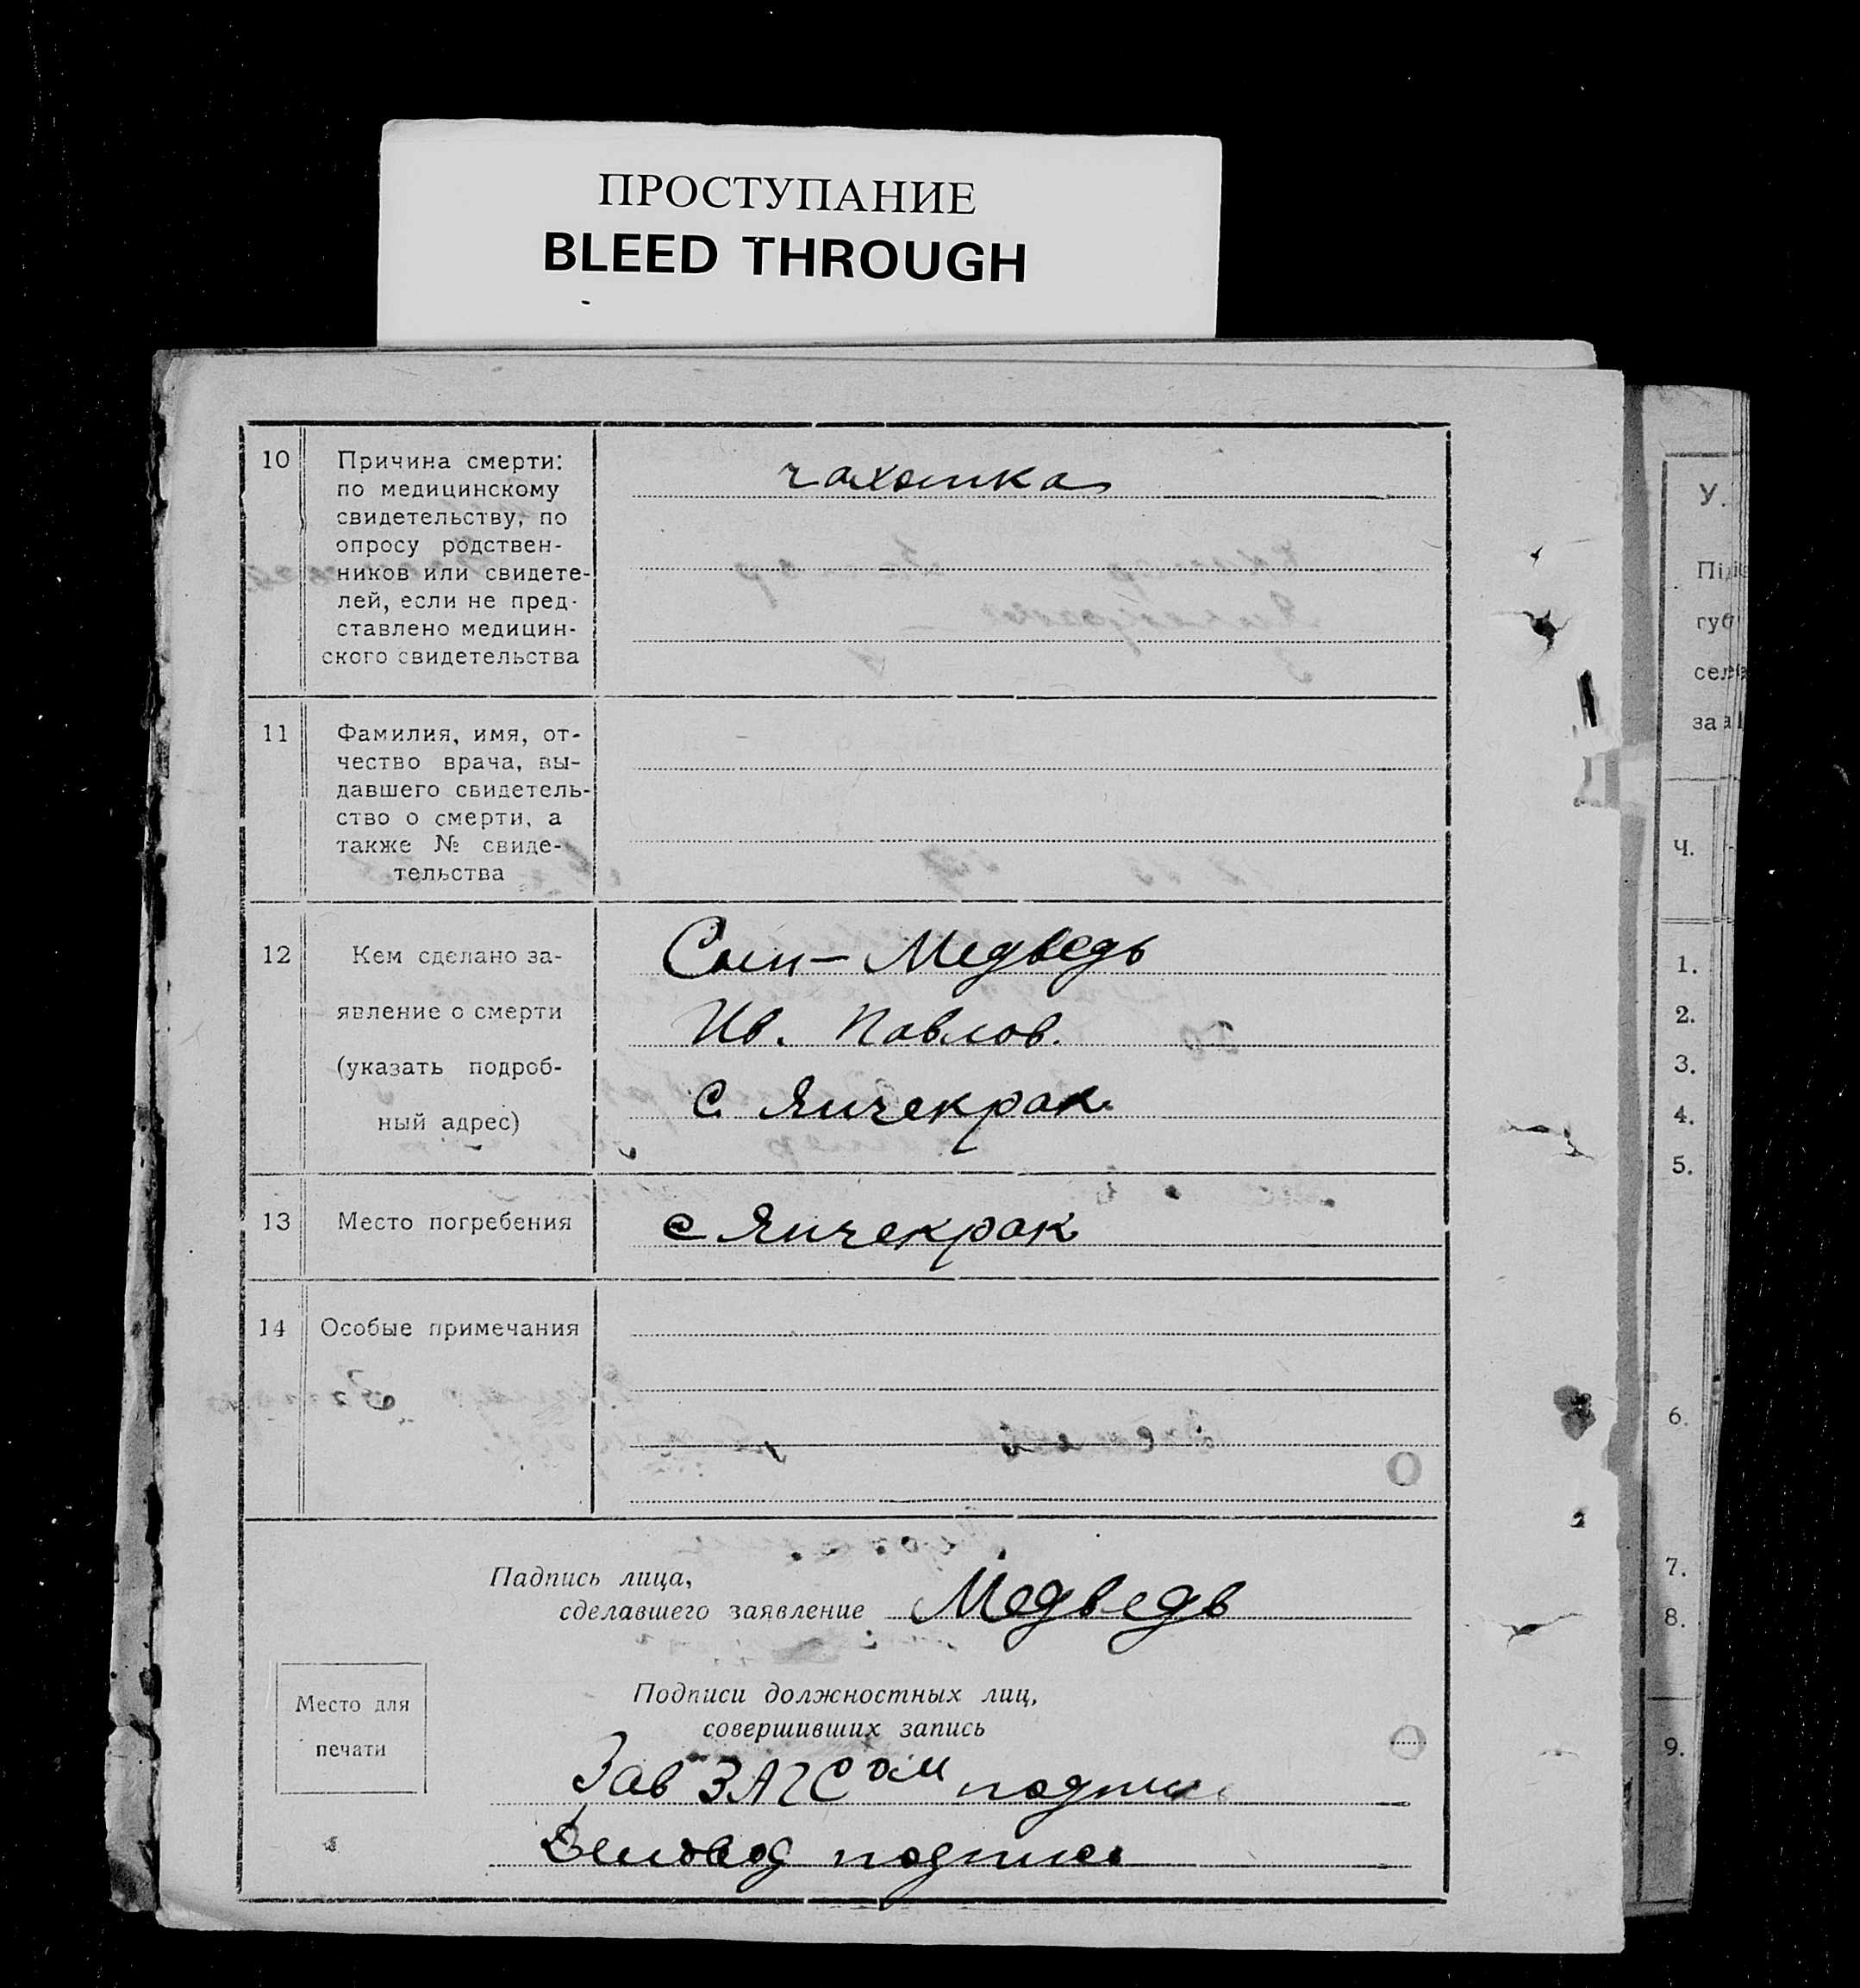 ПРОСТУПАНИЕ
BLEED THROUGH
10 Причина смерти:
по медицинскому
свидетельству, по
опросу родствен-
ников или свидете-
лей, если не пред-
ставлено медицин-
ского свидетельства
чахотка
11 Фамилия, имя, от-
чество врача, вы-
давшего свидетель-
ство о смерти, а
также № свиде-
тельства
12 Кем сделано за-
явление о смерти
(указать подроб-
ный адрес)
Сын – Медведь
Ив. Павлов.
с Янчекрак
13 Место погребения
с Янчекрак
14 Особые примечания
Падпись лица,
сделавшего заявление Медведь
Место для
печати
Подписи должностных лиц,
совершивших запись
Зав ЗАГСом подпись
Деловод подпись
У.
губ
Ч.
1.
2.
3.
4.
5.
6.
7.
8.
9.